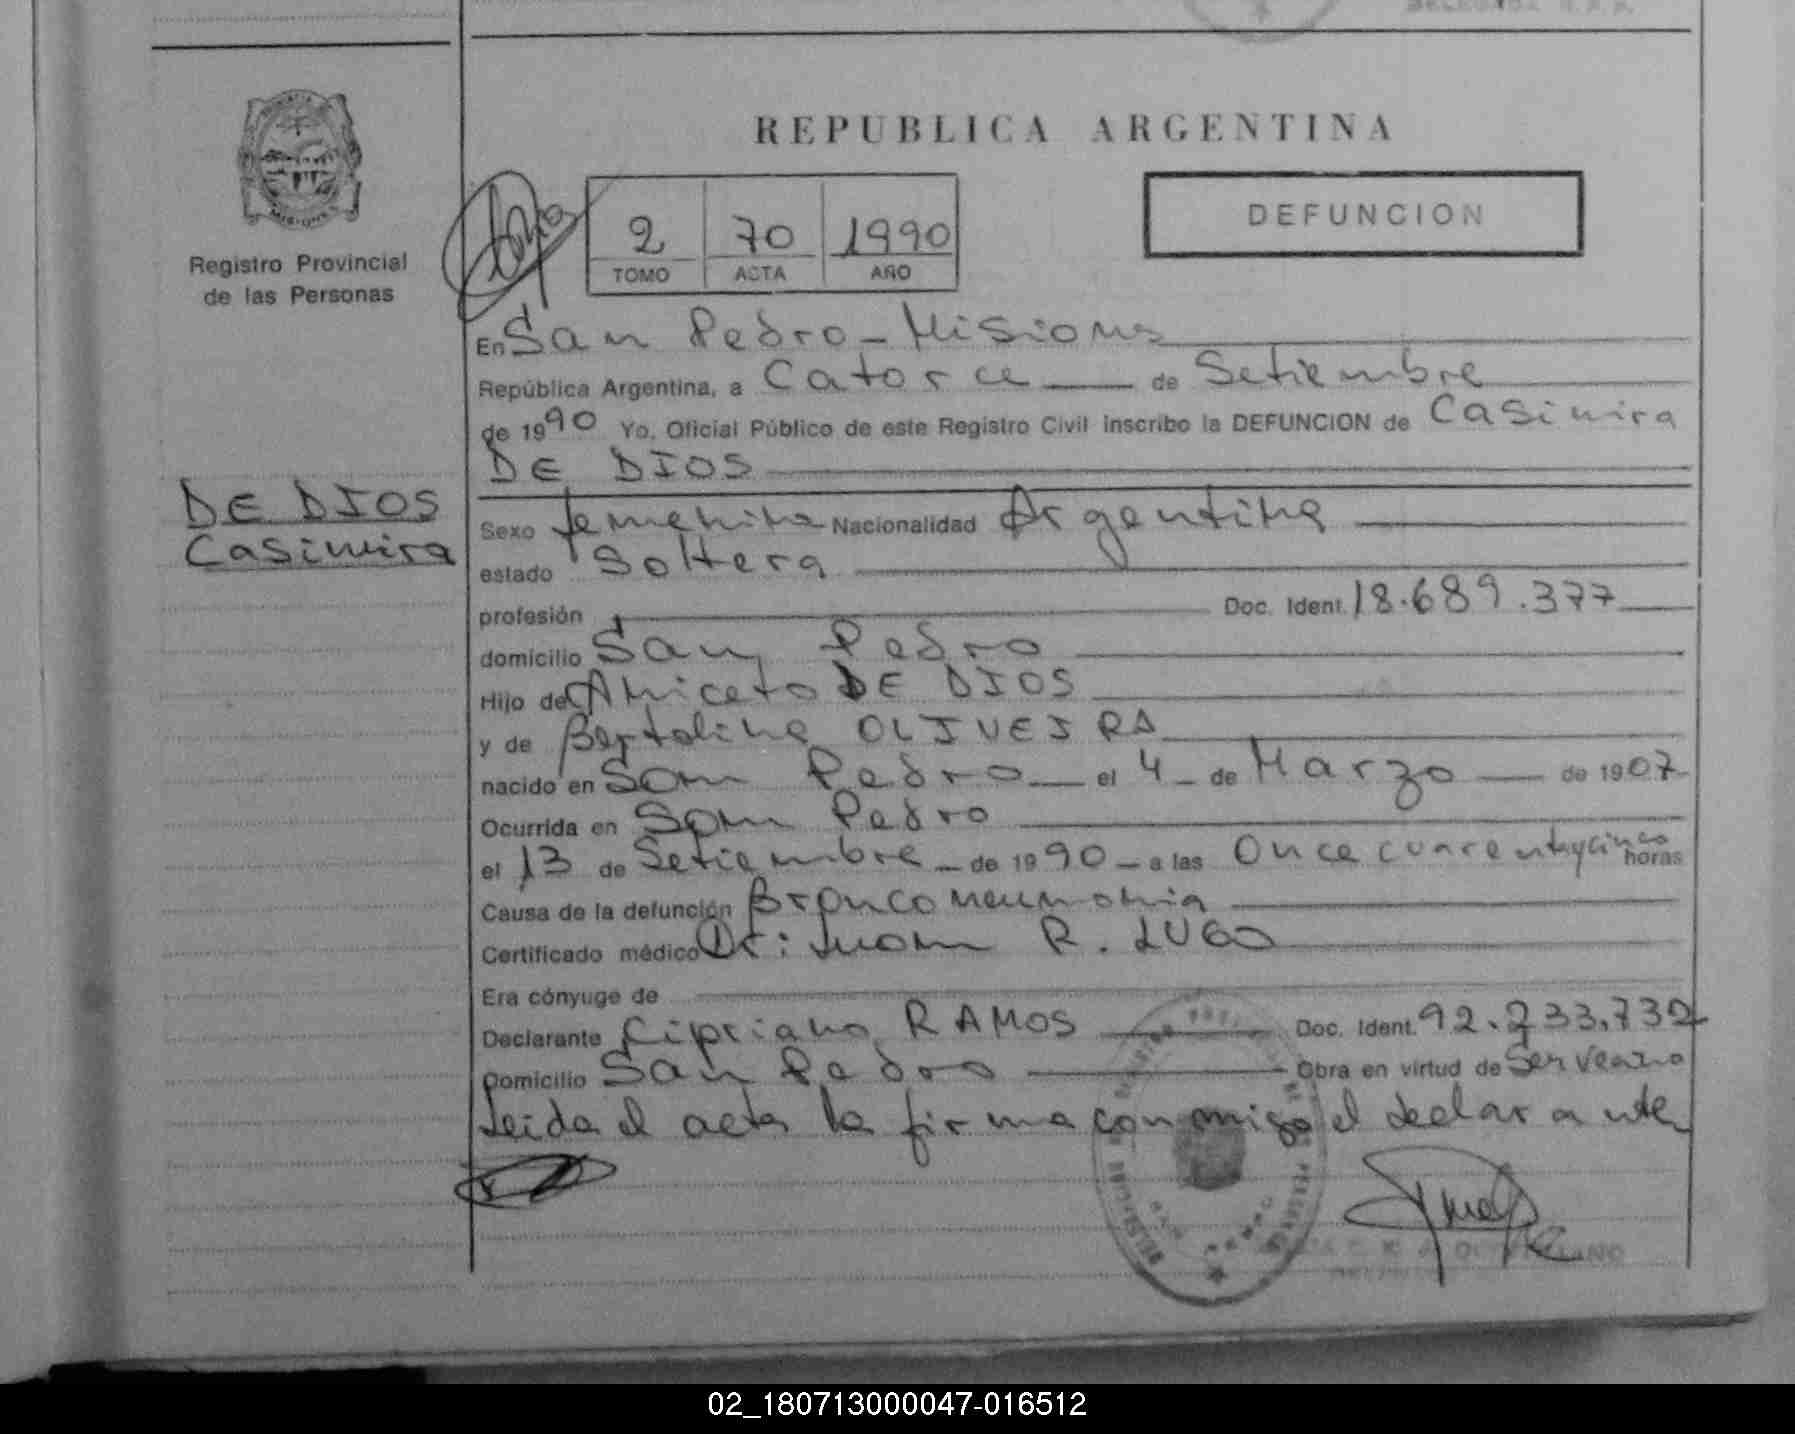 REPUBLICA ARGENTINA
MISIONES
Registro Provincial
de las Personas
2 70 1990
TOMO ACTA AÑO
DEFUNCION
En San Pedro - Misiones
República Argentina, a Catorce de Setiembre
de 1990 Yo, Oficial Público de este Registro Civil inscribo la DEFUNCION de Casimira
DE DIOS
DE DIOS
Casimira
Sexo femenino Nacionalidad Argentina
estado Soltera
profesión Doc. Ident. 18.689.377
domicilio San Pedro
Hijo de Aniceto DE DIOS
y de Bertolina OLIVEIRA
nacido en San Pedro el 4 de Marzo de 1907
Ocurrida en San Pedro
el 13 de Setiembre de 1990 a las Once cuarentaycinco horas
Causa de la defunción Bronconeumonia
Certificado médico Dr: Juan R. LUGO
Era cónyuge de
Declarante Cipriano RAMOS Doc. Ident. 92.233.732
Domicilio San Pedro Obra en virtud de Ser Vecino
Leida el acta la firma conmigo el declarante
02_180713000047-016512